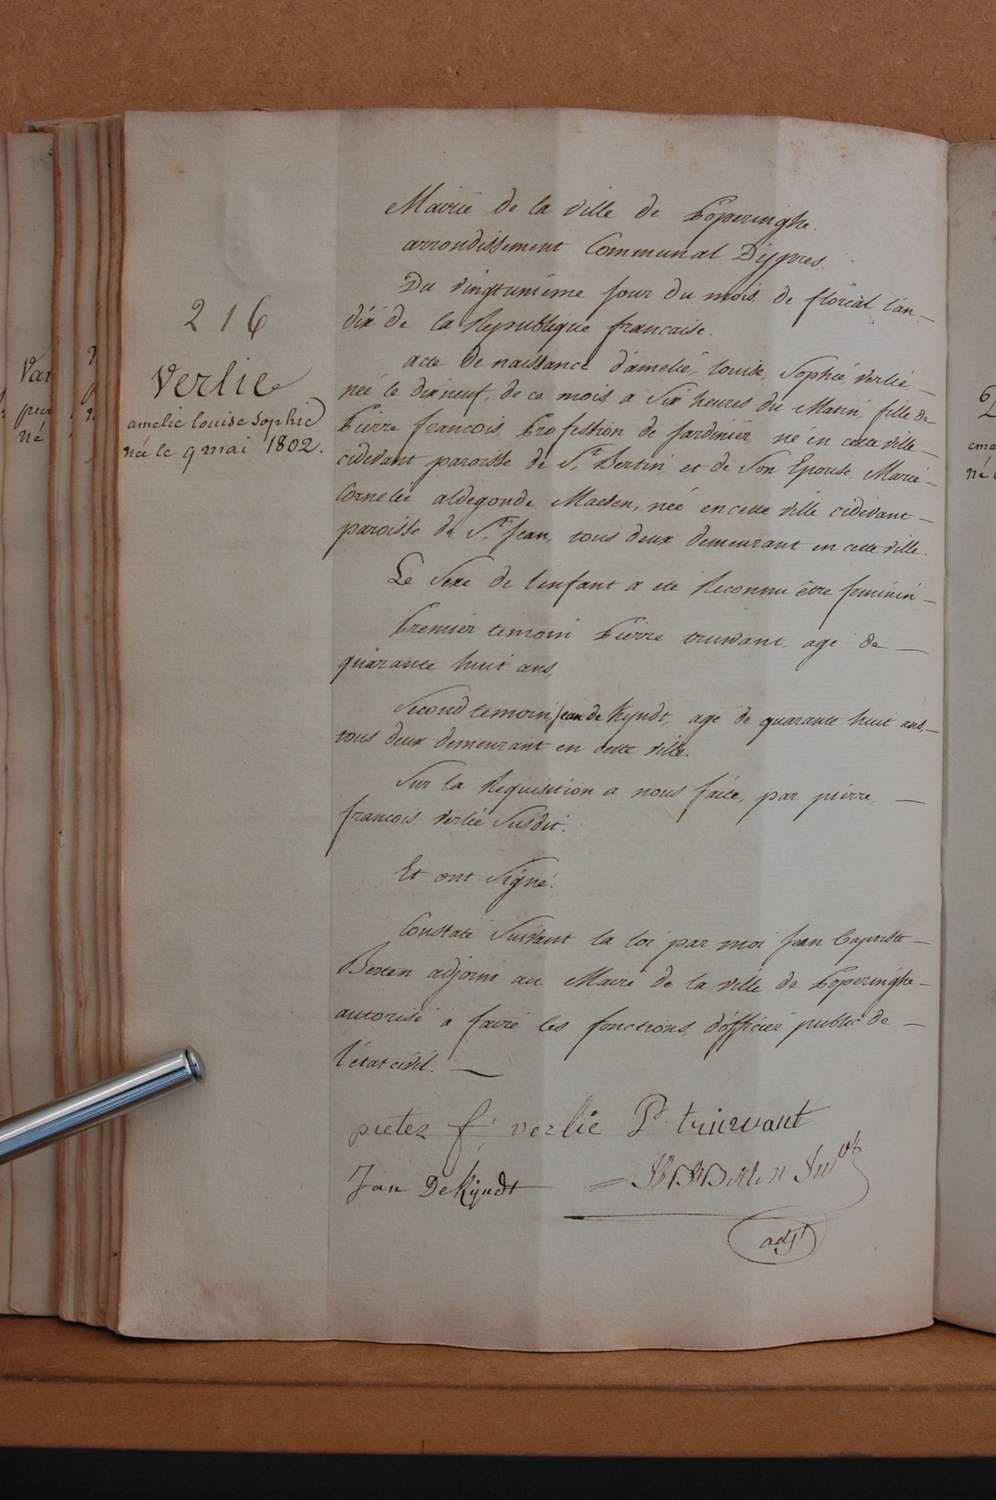 216
Verlie
amelie louise Sophie
née le 9 mai 1802.
Mairie de la ville de Poperinghe.
arrondissement Communal D'ypres.
Du vingtunième jour du mois de floréal l'an
dix de la République francaise.
acte de naissance d'amelie, louise, Sophie, verlie
née le dixneuf, de ce mois a Six heures du Matin, fille de
Pierre francois, Profession de Jardinier né en cette ville
cidevant paroisse de St Bertin et de Son Epouse Marie
Cornelie aldegonde Maeten, née en cette ville cidevant
paroisse de St Jean, tous deux demeurant en cette ville.
Le Sexe de l'enfant a eté Reconnu être feminin
Premier temoin Pierre truwant, agé de
quarante huit ans,
Second temoin Jean de Kyndt, agé de quarante huit ans,
tous deux demeurant en cette ville.
Sur la Requisition a nous faite, par pierre,
francois verlie Susdit.
Et ont Signé.
Constaté Suivant la loi par moi Jean baptiste
Berten adjoint au Maire de la ville de Poperinghe
autorisé a faire les fonctions d'officier public de
l'état civil.
pieter f verlie P. truwant
Jan DeKyndt
adjt
Var
né
6
née